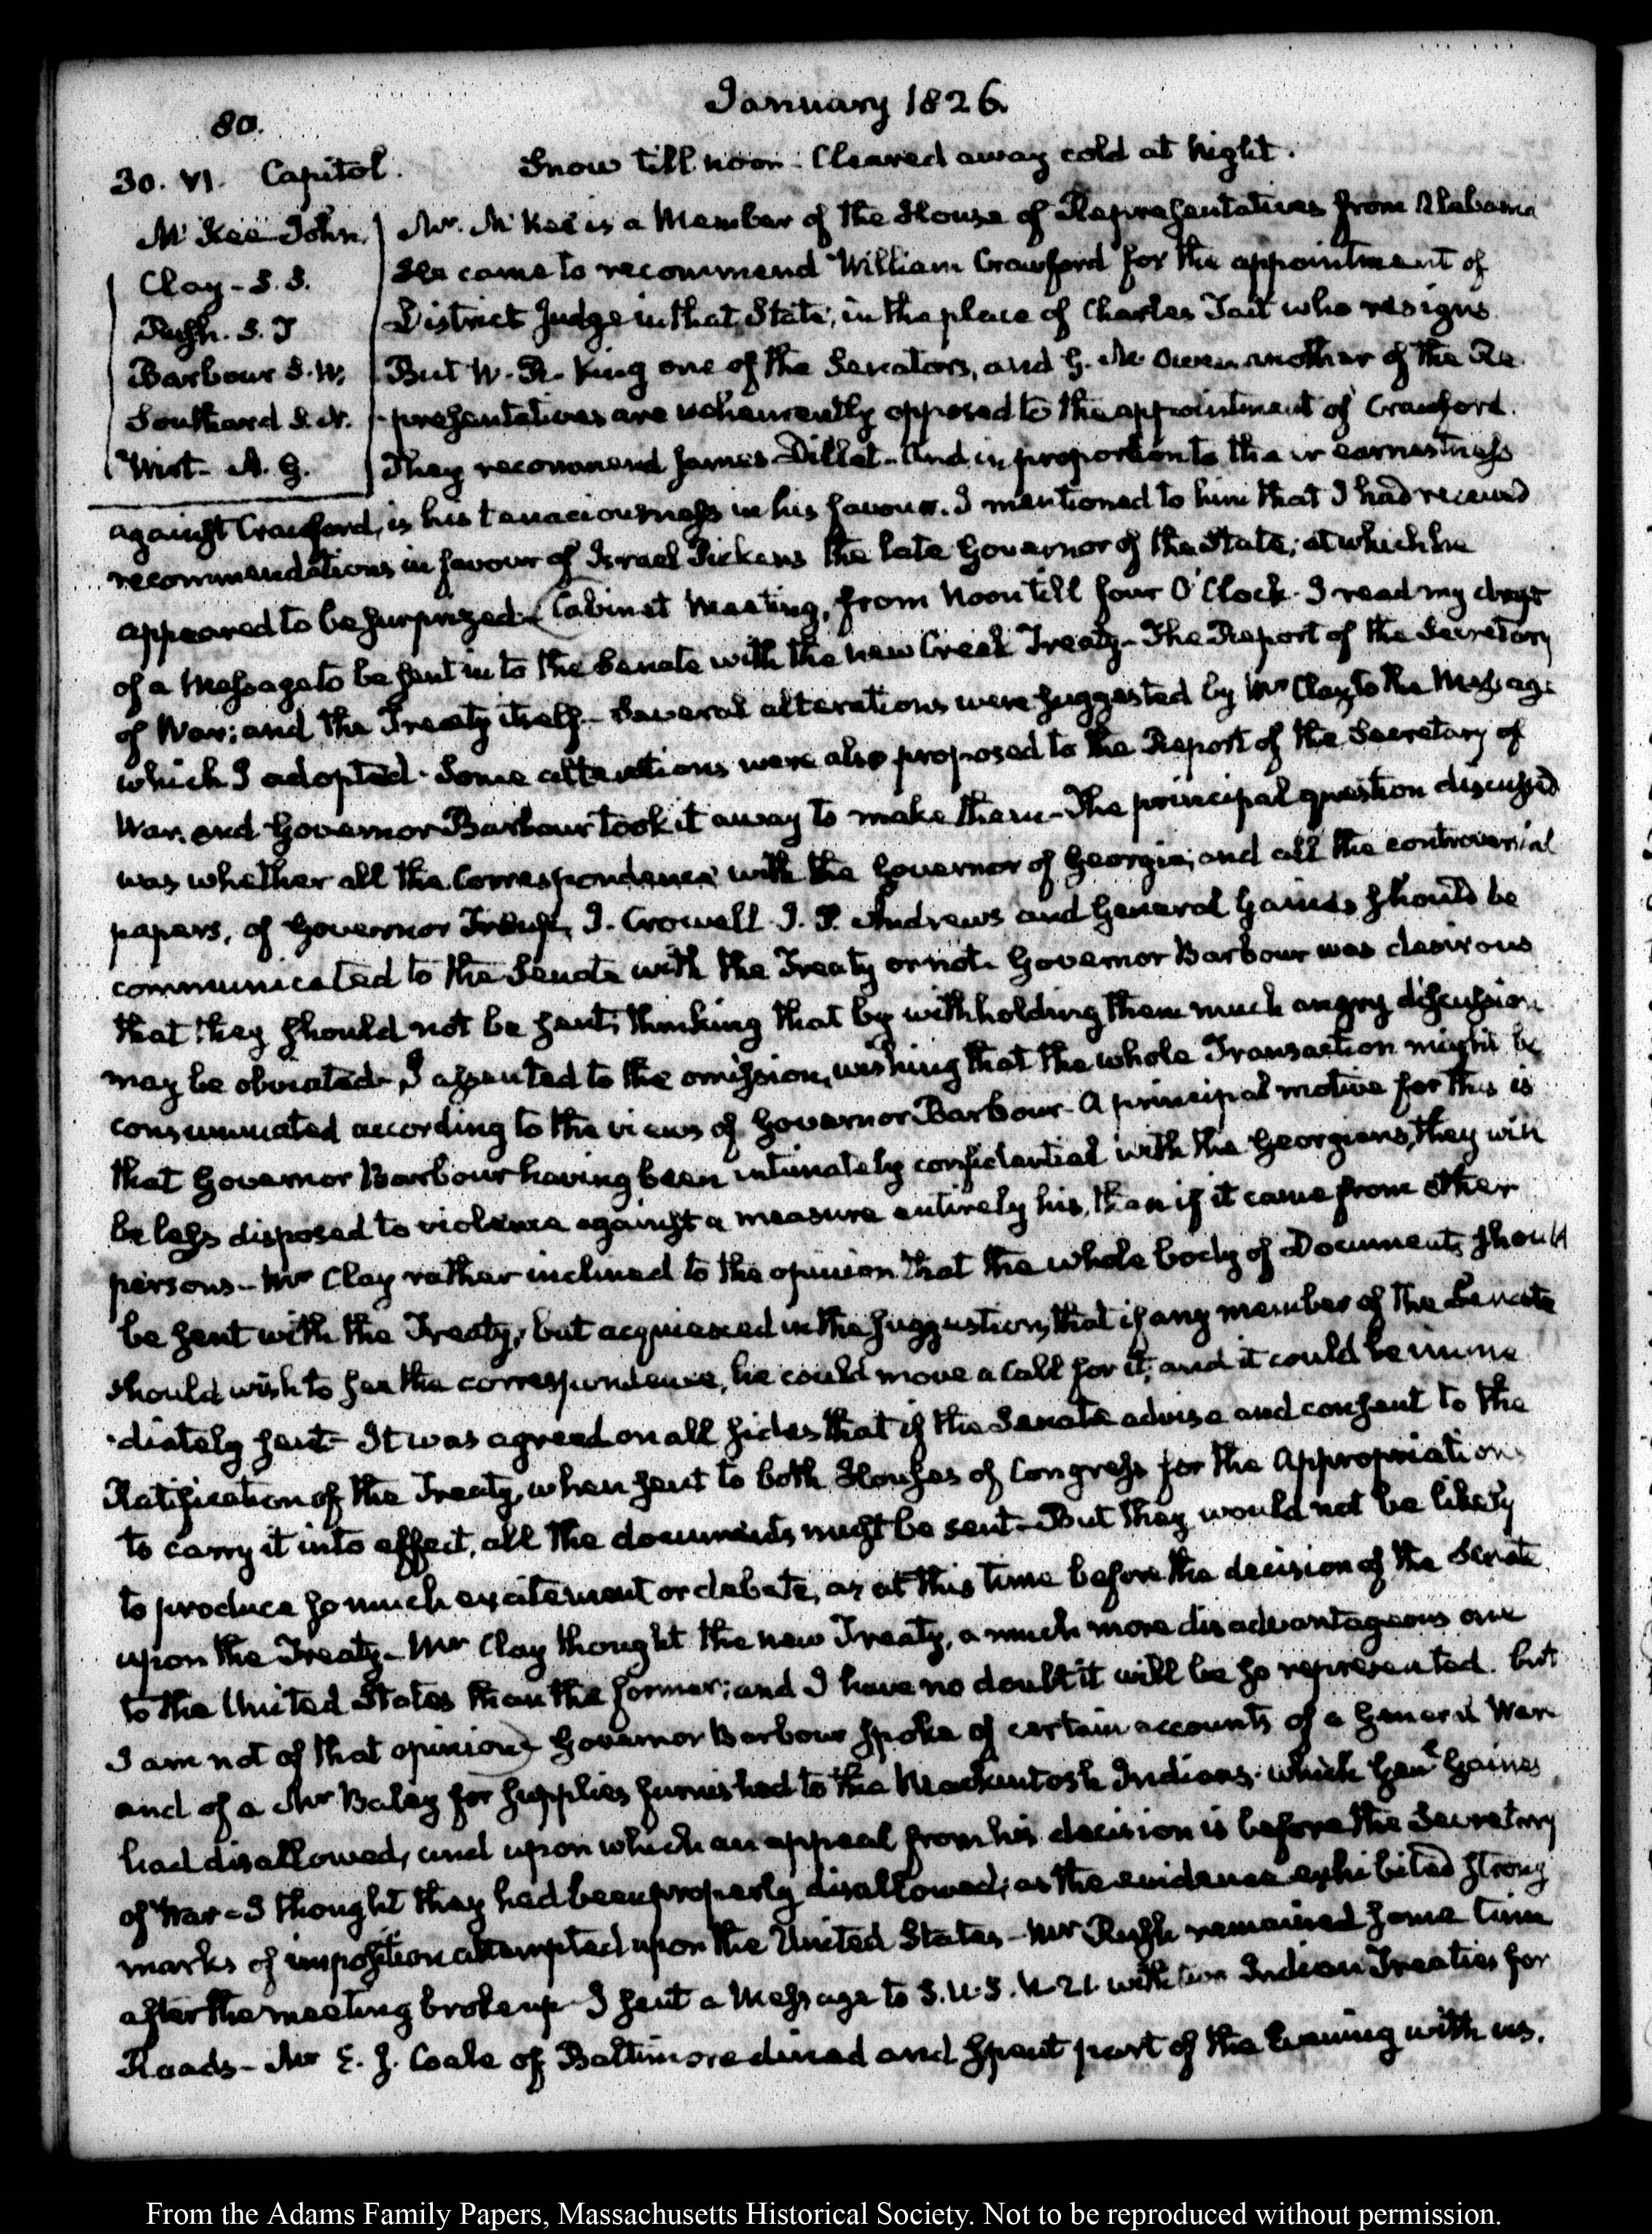 January 1826.
80.
30. VI. Capitol. Snow till noon - Cleared away cold at Night.
McKee John.
Clay - S. S.
Rush. S. T
Barbour S. W.
Southard S. N.
Wirt - A. G.
Mr. McKee is a Member of the House of Representatives from Alabama
He came to recommend William Crawford for the appointment of
District Judge in that State, in the place of Charles Tait who resigns.
But W. R. King one of the Senators, and G. W. Owen another of the Re-
-presentatives are vehemently opposed to the appointment of Crawford.
They recommend James Dillet - And in proportion to their earnestness
against Crawford, is his tenaciousness in his favour. I mentioned to him that I had received
recommendations in favour of Israel Pickens the late Governor of the State; at which he
appeared to be surprized - Cabinet Meeting, from Noon till four O'Clock - I read my draft
of a Message to be sent in to the Senate with the new Creek Treaty - The Report of the Secretary
of War; and the Treaty itself - Several alterations were suggested by Mr Clay to the Message
which I adopted - Some alterations were also proposed to the Report of the Secretary of
War, and Governor Barbour took it away to make them - The principal question discussed
was whether all the Correspondence with the Governor of Georgia, and all the controversial
papers, of Governor Troup, J. Crowell - T. P. Andrews and General Gaines should be
communicated to the Senate with the Treaty or not. Governor Barbour was desirous
that they should not be sent, thinking that by withholding them much angry discussion
may be obviated - I assented to the omission, wishing that the whole Transaction might be
consummated according to the views of Governor Barbour - A principal motive for this is
that Governor Barbour having been intimately confidential with the Georgians, they will
be less disposed to violence against a measure entirely his, than if it came from other
persons - Mr Clay rather inclined to the opinion that the whole body of Documents should
be sent with the Treaty, but acquiesced in the suggestion, that if any member of the Senate
should wish to see the correspondence, he could move a call for it, and it could be imme
-diately sent - It was agreed on all sides that if the Senate advise and consent to the
Ratification of the Treaty, when sent to both Houses of Congress for the Appropriations
to carry it into effect, all the documents must be sent - But they would not be likely
to produce so much excitement or debate, as at this time before the decision of the Senate
upon the Treaty - Mr Clay thought the new Treaty, a much more disadvantageous one
to the United States than the former; and I have no doubt it will be so represented. but
I am not of that opinion - Governor Barbour spoke of certain accounts of a General Ware
and of a Mr Baley for supplies furnished to the Mackintosh Indians. which Genl Gaines
had disallowed, and upon which an appeal from his decision is before the Secretary
of War - I thought they had been properly disallowed; as the evidence exhibited strong
marks of imposition attempted upon the United States - Mr Rush remained some time
after the meeting broke up - I sent a Message to S. U. S. N. 21. with two Indian Treaties for
Roads - Mr E. J. Coale of Baltimore dined and spent part of the Evening with us.
From the Adams Family Papers, Massachusetts Historical Society. Not to be reproduced without permission.